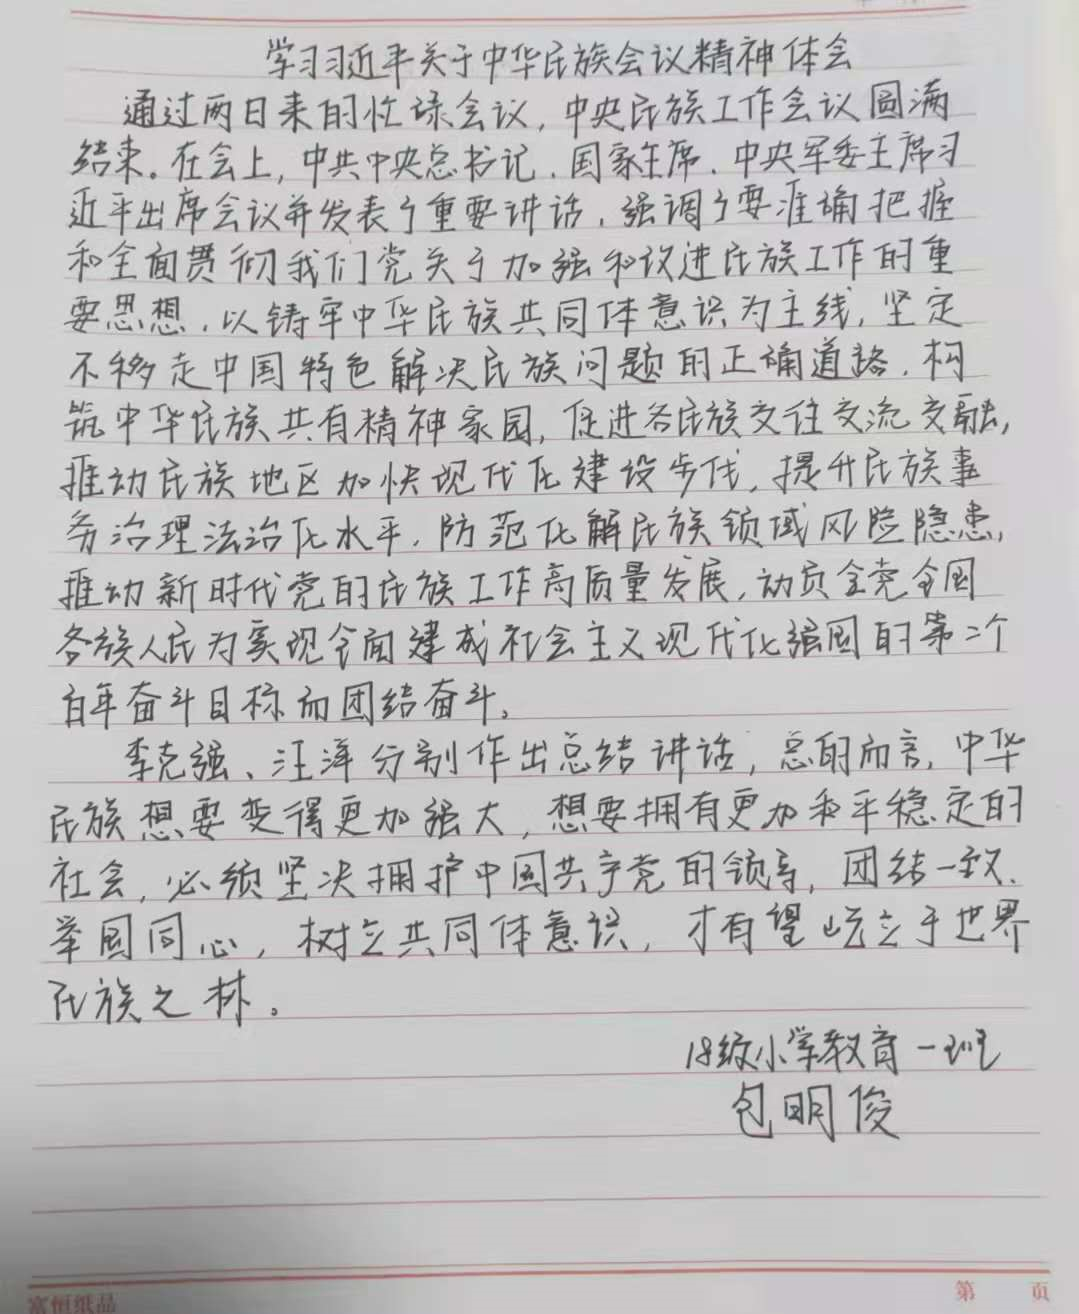 学习习近平关于中华民族会议精神体会
通过两日来的忙碌会议,中央民族工作会议圆满
结束。在会上,中共中央总书记、国家主席、中央军委主席习
近平出席会议并发表了重要讲话,强调了要准确把握
和全面贯彻我们党关于加强和改进民族工作的重
要思想,以铸牢中华民族共同体意识为主线,坚定
不移走中国特色解决民族问题的正确道路,构
筑中华民族共有精神家园,促进各民族交往交流交融,
推动民族地区加快现代化建设步伐,提升民族事
务治理法治化水平,防范化解民族领域风险隐患,
推动新时代党的民族工作高质量发展,动员全党全国
各族人民为实现全面建成社会主义现代化强国的第二个
百年奋斗目标而团结奋斗。
李克强、汪洋分别作出总结讲话,总的而言,中华
民族想要变得更加强大,想要拥有更加和平稳定的
社会,必须坚决拥护中国共产党的领导,团结一致、
举国同心,树立共同体意识,才有望屹立于世界
民族之林。
18级小学教育一班
包明俊
富恒纸品
第 页